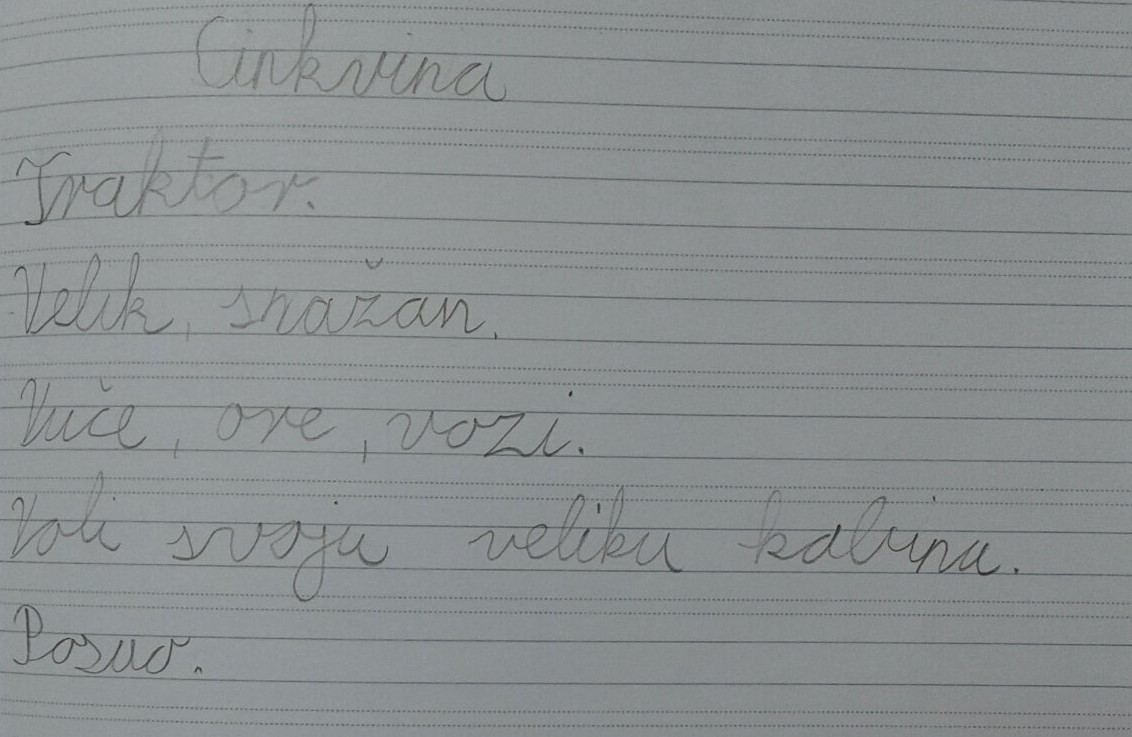 Cinkvina
Traktor.
Velik, snažan.
Vuče, ore, vozi.
Voli svoju veliku kabinu.
Posao.